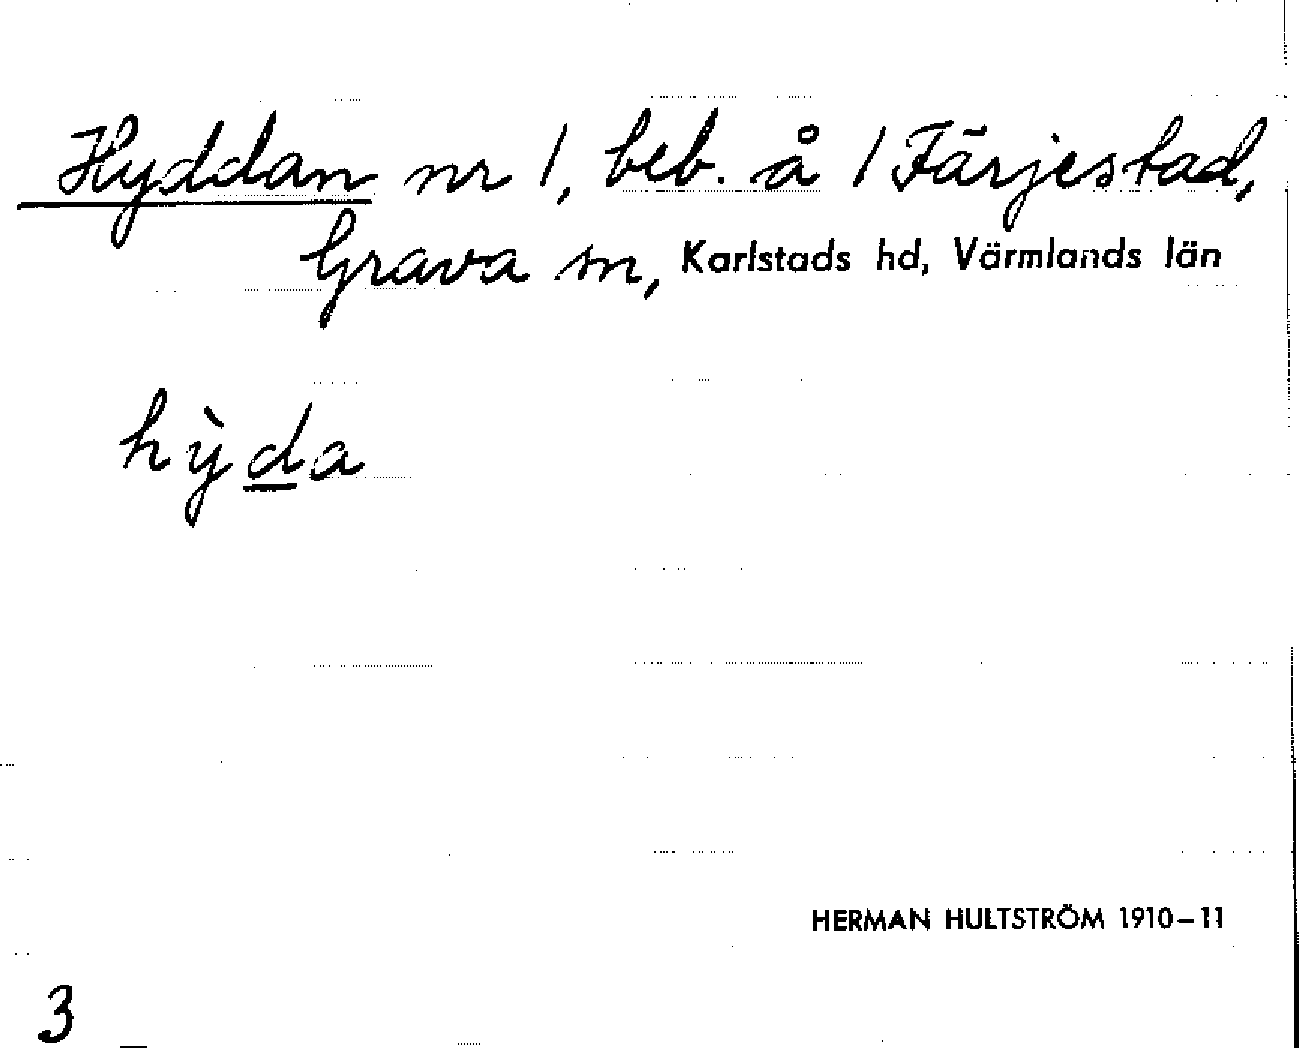 Hyddan nr 1, beb. å 1 Färjestad,
Grava sn, Karlstads hd, Värmlands län
hy̍̀da
HERMAN HULTSTRÖM 1910–11
3